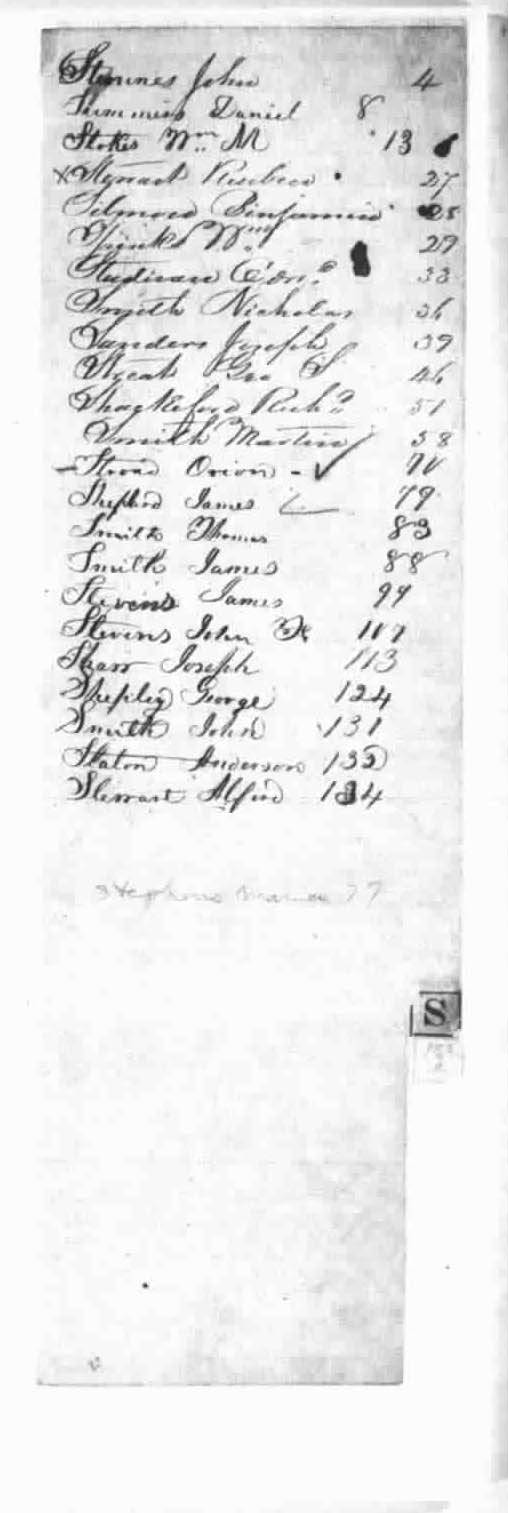 John 4
Daniel 8
Stokes Wm. M 13
x Stewart Reuben 27
Benjamin 28
Spinks Wm. 29
33
Smith Nicholas 36
Sanders Joseph 39
Geo S 46
Shackleford Richd. 51
Smith Martin 58
Stroud Orion
Shepherd James 79
Smith Thomas 83
Smith James 88
Stevens James 99
Stevens John
Shaw Joseph 113
Shepley George 124
Smith John 131
Staton Anderson 132
Stewart Alfred 134
Stephens 77
S